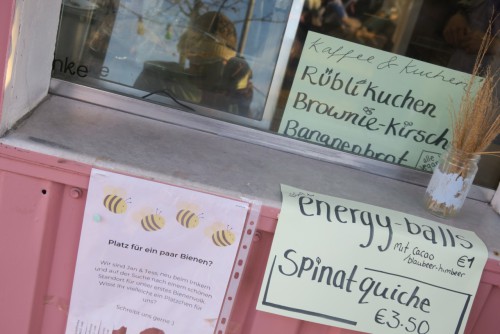 Kaffee & Kuchen
Rüblikuchen
Brownie-Kirsch
Bananenbrot
energy-balls
mit Cacao
blaubeer-himbeer
€1
Spinatquiche
€3,50
Platz für ein paar Bienen?
Wir sind Jan & Tedi. Neu beim Imkern
und auf der Suche nach einem schönen
Standort für unser erstes Bienenvolk.
Wisst ihr vielleicht ein Plätzchen für
uns?
Schreibt uns gerne :)